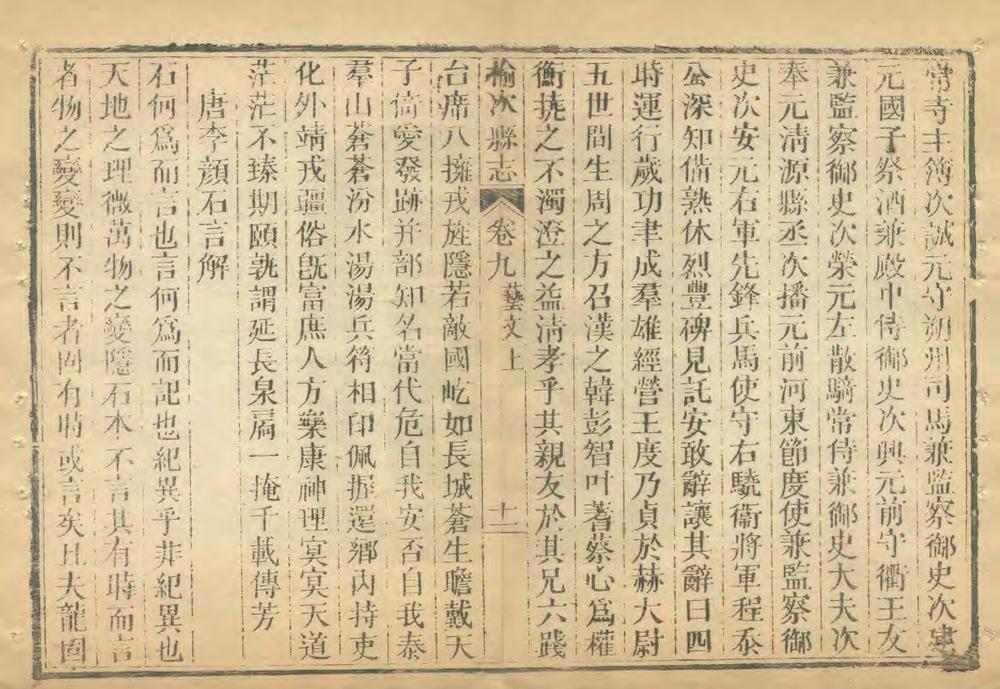 常寺主簿次誠元守朔州司馬兼監察御史次建
元國子祭酒兼殿中侍御史次興元前守衢王友
兼監察御史次榮元左散騎常侍兼御史大夫次
奉元清源縣丞次播元前河東節度使兼監察御
史次安元右軍先鋒兵馬使守右驍衞將軍程忝
公深知備熟休烈豐碑見託安敢辭讓其辭曰四
時運行歲功聿成羣雄經營王度乃貞於赫大尉
五世間生周之方召漢之韓彭智叶蓍蔡心爲權
衡撓之不濁澄之益清孝乎其親友於其兄六踐
榆次縣志 卷九 藝文上 十一
台席八擁戎旌隱若敵國屹如長城蒼生瞻戴天
子倚愛發跡并部知名當代危自我安否自我泰
羣山蒼蒼汾水湯湯兵符相印佩握還鄉內持吏
化外靖戎疆俗旣富庶人方樂康神理寞寞天道
茫茫不臻期頤孰謂延長泉扃一掩千載傳芳
唐李顏石言解
石何爲而言也言何爲而記也紀異乎非紀異也
天地之理微萬物之變隱石本不言其有時而言
者物之變變則不言者固有時或言矣且夫龍圖